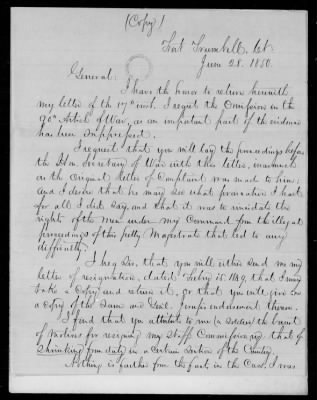 (Copy)
Fort Trumbull, Ct.
June 28. 1850.
General:
I have the honor to return herewith
my letter of the 17th inst. I regret the Omission in the
96th Article of War, as an important part of the evidence
has been suppressed.
I request that you will lay the proceedings before
the Hon. Secretary of War with this letter, inasmuch
as the original letter of Complaint was made to him;
And I desire that he may see what provocation I had
for all I did say, and that it was to vindicate the
rights of the men under my Command from the illegal
proceedings of this petty Magistrate that led to any
difficulty.
I beg, Sir, that you will either send me my
letter of resignation, dated July 15. 1849, that I may
take a copy and return it, or that you will give me
a copy of the same and Genl. endorsement thereon.
I find that you attribute to me (a Soldier) the
motives for resigning my Staff Commission, viz that of
Shrinking from duty in a Certain Section of the Country.
Nothing is further from the fact, in the Case. I was